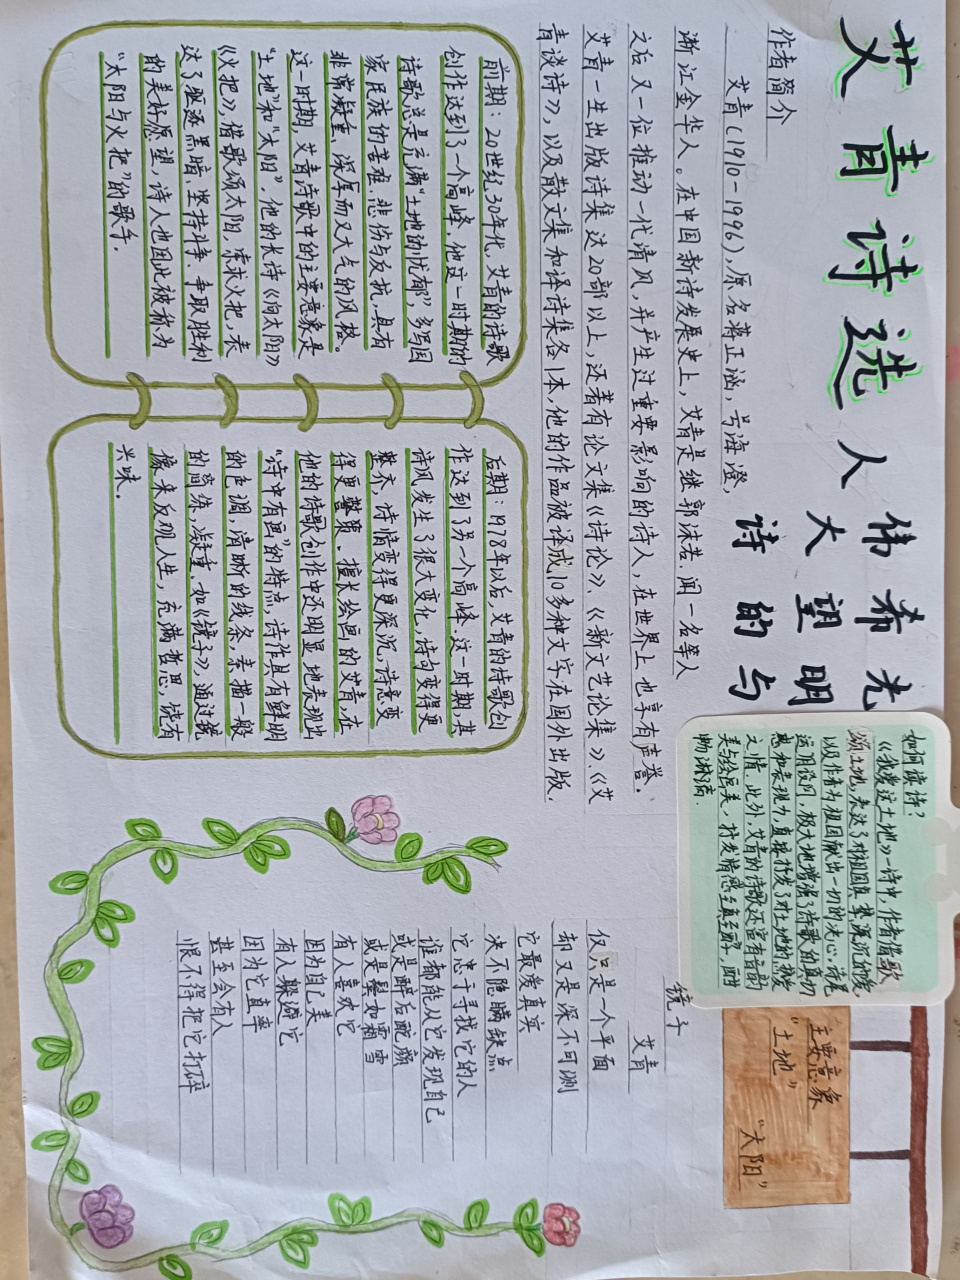 艾青诗选
人
伟大诗
希望的
光明与
作者简介
艾青(1910-1996),原名蒋正涵,号海澄,
浙江金华人。在中国新诗发展史上,艾青是继郭沫若、闻一名等人
之后又一位推动一代诗风,并产生过重要影响的诗人,在世界上也享有声誉。
艾青一生出版诗集达20部以上,还著有论文集《诗论》、《新文艺论集》、《艾
青谈诗》,以及散文集和译诗集各1本,他的作品被译成10多种文字在国外出版,
前期:20世纪30年代,艾青的诗歌
创作达到了一个高峰,他这一时期的
诗歌总是充满“土地的忧郁”,多写国
家民族的苦难、悲伤与反抗,具有
非常凝重、深厚而又大气的风格。
这一时期,艾青诗歌中的主要意象是
“土地”和“太阳”,他的长诗《向太阳》
《火把》,借歌颂太阳,索求火把,表
达了驱逐黑暗、坚持斗争、争取胜利
的美好愿望,诗人也因此被称为
“太阳与火把”的歌手。
后期:1978年以后,艾青的诗歌创
作达到了另一个高峰.这一时期,其
诗风发生了很大变化,诗句变得更
整齐,诗情变得更深沉,诗意变
得更警策.擅长绘画的艾青,在
他的诗歌创作中还明显地表现出
“诗中有画”的特点,诗作具有鲜明
的色调,清晰的线条,素描一般
的简练,凝重.如《镜子》,通过镜
像来反观人生,充满哲思,饶有
兴味.
如何读诗?
《我爱这土地》一诗中,作者借歌
颂土地,表达了对祖国真挚深沉的爱
以及作者为祖国献出一切的决心.诗尾
运用设问,极大地增强了诗歌的真切
感和表现力,直接抒发了对土地的挚爱
之情.此外,艾青的诗歌还富有音韵
美与绘画美,抒发情感至真至醇,酣
畅淋漓.
主要意象
“土地”
“太阳”
镜子
艾青
仅只是一个平面
却又是深不可测
它最爱真实
决不隐瞒缺点
它忠于寻找它的人
谁都能从它发现自己
或是醉后酡颜
或是鬓如霜雪
有人喜欢它
因为自己美
有人躲避它
因为它直率
甚至会有人
恨不得把它打碎